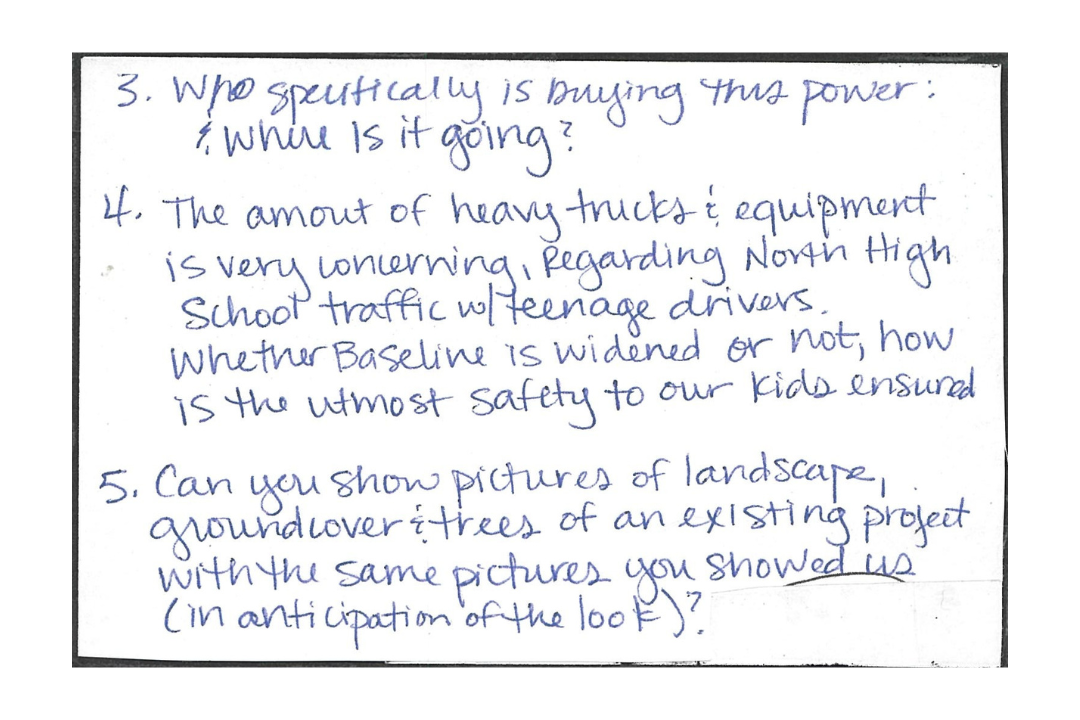 3. Who specifically is buying this power:
& where is it going?
4. The amout of heavy trucks & equipment
is very concerning, Regarding North High
School traffic w/ teenage drivers.
Whether Baseline is widened or not, how
is the utmost safety to our kids ensured
5. Can you show pictures of landscape,
groundcover & trees of an existing project
with the same pictures you showed us
(in anticipation of the look)?